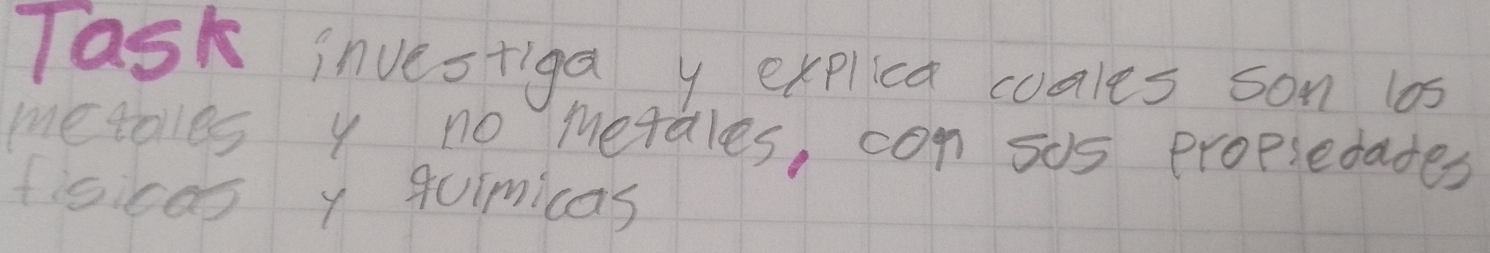 Task investiga y explica cuales son los
metales y no metales, con sus propiedades
fisicas y quimicas